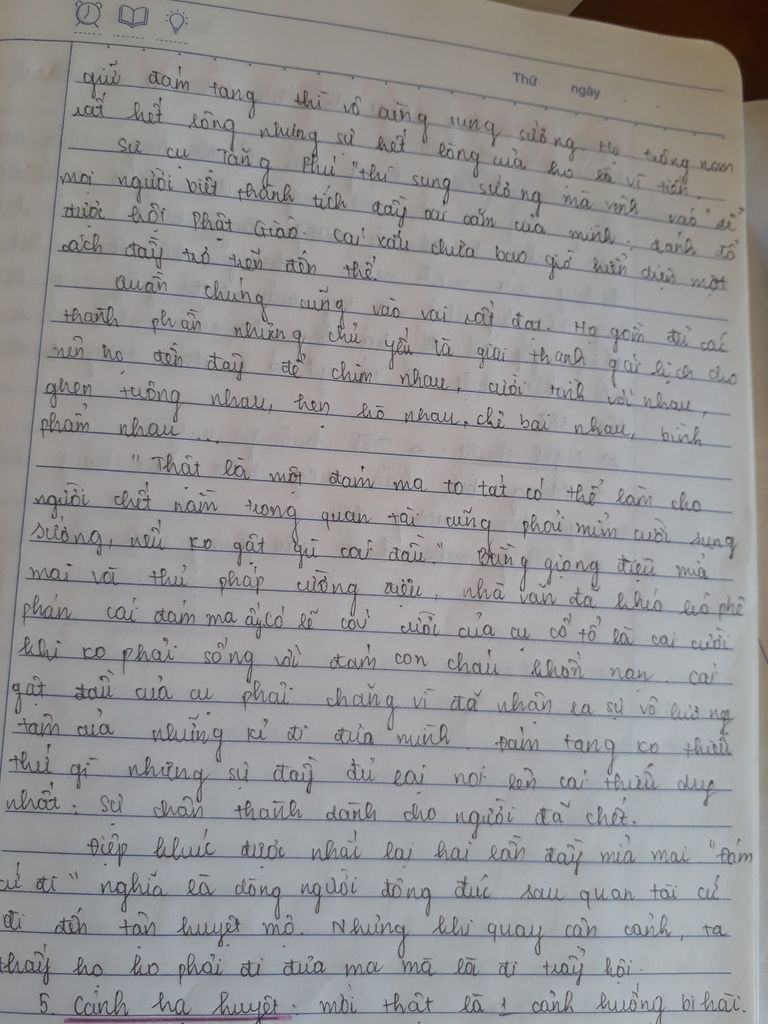 Thứ ngày
giữ đám tang thì vô cùng sung sướng. Họ trông nom
rất hết lòng nhưng sự hết lòng của họ là vì tiền.
Sư cụ Tăng Phú "thì sung sướng mà vênh váo" để
mọi người biết thành tích đầy oai của mình: đánh đổ
được hội Phật Giáo. Cái xấu chưa bao giờ hiện diện một
cách đầy trơ trẽn đến thế.
Quần chúng cũng vào vai rất đạt. Họ gồm đủ các
thành phần nhưng chủ yếu là giai thanh gái lịch cho
nên họ đến đây để chim nhau, cười tình với nhau,
ghen tuông nhau, hẹn hò nhau, chê bai nhau, bình
phẩm nhau ...
"Thật là một đám ma to tát có thể làm cho
người chết nằm trong quan tài cũng phải mỉm cười sung
sướng, nếu ko gật gù cái đầu." Bằng giọng điệu mỉa
mai và thủ pháp cường điệu, nhà văn đã khéo léo phê
phán cái đám ma ấy. Có lẽ cái cười của cụ cố tổ là cái cười
khi ko phải sống với đám con cháu khốn nạn. Cái
gật đầu của cụ phải chăng vì đã nhận ra sự vô lương
tâm của những kẻ đi đưa mình. Đám tang ko thiếu
thứ gì nhưng sự đầy đủ lại nói lên cái thiếu duy
nhất: sự chân thành dành cho người đã chết.
Điệp khúc được nhắc lại hai lần đầy mỉa mai "Đám
cứ đi" nghĩa là dòng người đông đúc sau quan tài cứ
đi đến tận huyệt mộ. Nhưng khi quay cận cảnh, ta
thấy họ ko phải đi đưa ma mà là đi trẩy hội.
5. Cảnh hạ huyệt: mới thật là 1 cảnh huống bi hài.